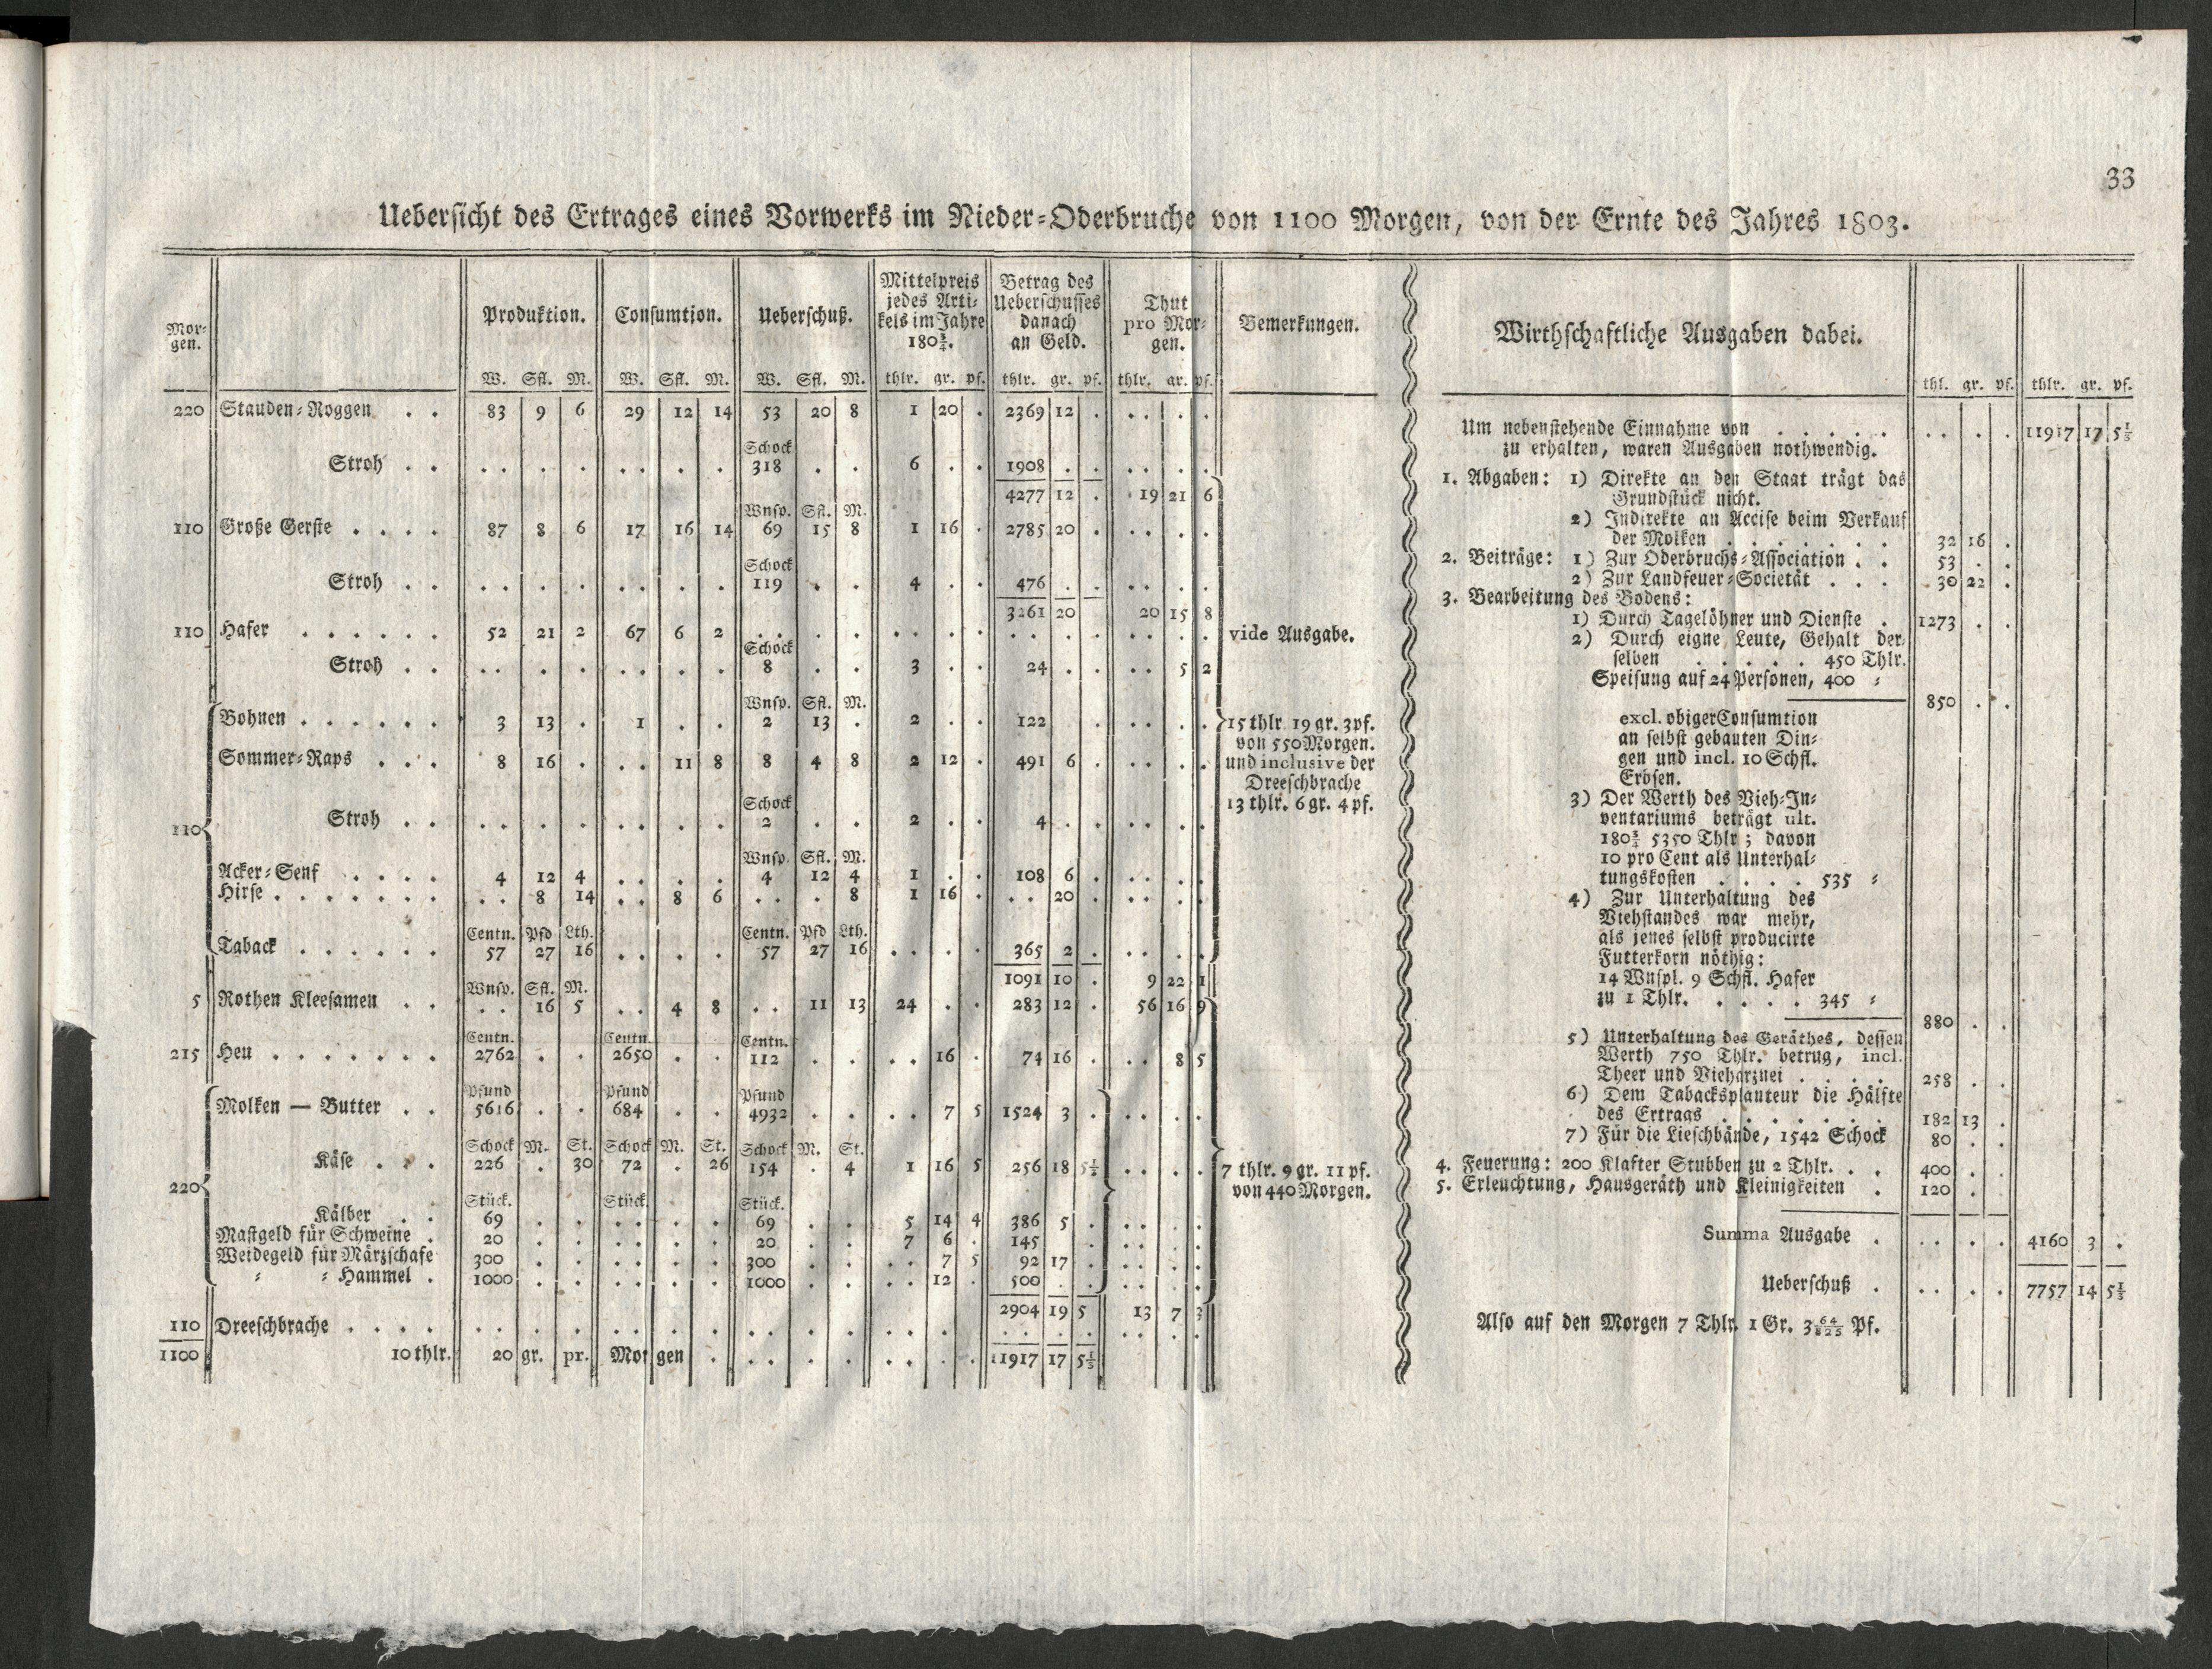 33
Uebersicht des Ertrages eines Vorwerks im Nieder-Oderbruche von 1100 Morgen, von der Ernte des Jahres 1803.
Mor-
gen.
Produktion.
W. Sfl. M.
Consumtion.
W. Sfl. M.
Ueberschuß.
W. Sfl. M.
Mittelpreis
jedes Arti-
kels im Jahre
180¾.
thlr. gr. pf.
Betrag des
Ueberschusses
danach
an Geld.
thlr. gr. pf.
Thut
pro Mor-
gen.
thlr. gr. pf.
Bemerkungen.
220 Stauden-Roggen . . 83 9 6 29 12 14 53 20 8 1 20 . 2369 12 . . . . .
Schock
Stroh . . . . . . . . . 318 . . 6 . . 1908 . .
4277 12 . 19 21 6
Wnsp. Sfl. M.
110 Große Gerste . . . . 87 8 6 17 16 14 69 15 8 1 16 . 2785 20 . . . . .
Schock
Stroh . . . . . . . . . 119 . . 4 . . 476 . . . . . .
3261 20 20 15 8
110 Hafer . . . . . . 52 21 2 67 6 2 . . . . . . . . . . . . . . . . vide Ausgabe.
Schock
Stroh . . . . . . . . . 8 . . 3 . . 24 . . . . 5 2
Wnsp. Sfl. M.
Bohnen . . . . . . 3 13 . 1 . . 2 13 . 2 . . 122 . . . . 15 thlr. 19 gr. 3 pf.
von 550 Morgen.
Sommer-Raps . . . 8 16 . . . 11 8 8 4 8 2 12 . 491 6 . . . . . und inclusive der
Dreeschbrache
13 thlr. 6 gr. 4 pf.
Schock
110 Stroh . . . . . . . . . 2 . . 2 . . 4 . . . . . .
Wnsp. Sfl. M.
Acker-Senf . . . . 4 12 4 . . . . 4 12 4 1 . . 108 6 . . . . .
Hirse . . . . . . . . 8 14 . . 8 6 . . . 8 1 16 . . . 20 . . . . .
Centn. Pfd Lth. Centn. Pfd Lth.
Taback . . . . . . 57 27 16 . . . . 57 27 16 . . . . 365 2 . . . . .
1091 10 . 9 22 1
Wnsp. Sfl. M.
5 Rothen Kleesamen . . . . 16 5 . . 4 8 . . 11 13 24 . . 283 12 . 56 16 9
Centn. Centn. Centn.
215 Heu . . . . . . . 2762 . . 2650 . . 112 . . . . 16 . 74 16 . . . 8 5
Pfund Pfund Pfund
Molken — Butter . . 5616 . . 684 . . 4932 . . . . 7 5 1524 3 . . . . .
Schock M. St. Schock M. St. Schock M. St.
Käse . . . 226 . 30 72 . 26 154 . 4 1 16 5 256 18 5⅓ . . . . 7 thlr. 9 gr. 11 pf.
220 von 440 Morgen.
Stück. Stück. Stück.
Kälber . . 69 . . . . . . 69 . . 5 14 4 386 5 . . . . .
Mastgeld für Schweine . 20 . . . . . . 20 . . 7 6 . 145 . . . .
Weidegeld für Märzschafe 300 . . . . . . 300 . . . . 7 5 92 17 . . . . .
= = Hammel . 1000 . . . . . . 1000 . . . . 12 . 500 . . . . . .
2904 19 5 13 7 3
110 Dreeschbrache . . . . . . . . . . . . . . . . . . . . . . . . . . .
1100 10 thlr. 20 gr. pr. Morgen . . . . . . . . . 11917 17 5⅓
Wirthschaftliche Ausgaben dabei.
thl. gr. pf. thlr. gr. pf.
Um nebenstehende Einnahme von . . . . . . . . . 11917 17 5⅓
zu erhalten, waren Ausgaben nothwendig.
1. Abgaben: 1) Direkte an den Staat trägt das
Grundstück nicht.
2) Indirekte an Accise beim Verkauf
der Molken . . . . . . . 32 16 .
2. Beiträge: 1) Zur Oderbruchs-Association . . 53 . .
2) Zur Landfeuer-Societät . . . 30 22 .
3. Bearbeitung des Bodens:
1) Durch Tagelöhner und Dienste . 1273 . .
2) Durch eigne Leute, Gehalt der-
selben . . . . . 450 Thlr.
Speisung auf 24 Personen, 400 =
850 . .
excl. obiger Consumtion
an selbst gebauten Din-
gen und incl. 10 Schfl.
Erbsen.
3) Der Werth des Vieh-In-
ventariums beträgt ult.
180¾ 5350 Thlr; davon
10 pro Cent als Unterhal-
tungskosten . . . . 535 =
4) Zur Unterhaltung des
Viehstandes war mehr,
als jenes selbst producirte
Futterkorn nöthig:
14 Wnspl. 9 Schfl. Hafer
zu 1 Thlr. . . . . 345 =
880 . .
5) Unterhaltung des Geräthes, dessen
Werth 750 Thlr. betrug, incl.
Theer und Vieharznei . . . . 258 . .
6) Dem Tabackspflanteur die Hälfte
des Ertrags . . . . . . 182 13 .
7) Für die Lieschbände, 1542 Schock 80 . .
4. Feuerung: 200 Klafter Stubben zu 2 Thlr. . . 400 . .
5. Erleuchtung, Hausgeräth und Kleinigkeiten . 120 . .
Summa Ausgabe . . . . . 4160 3 .
Ueberschuß . . . . . 7757 14 5⅓
Also auf den Morgen 7 Thlr. 1 Gr. 3 64/825 Pf.